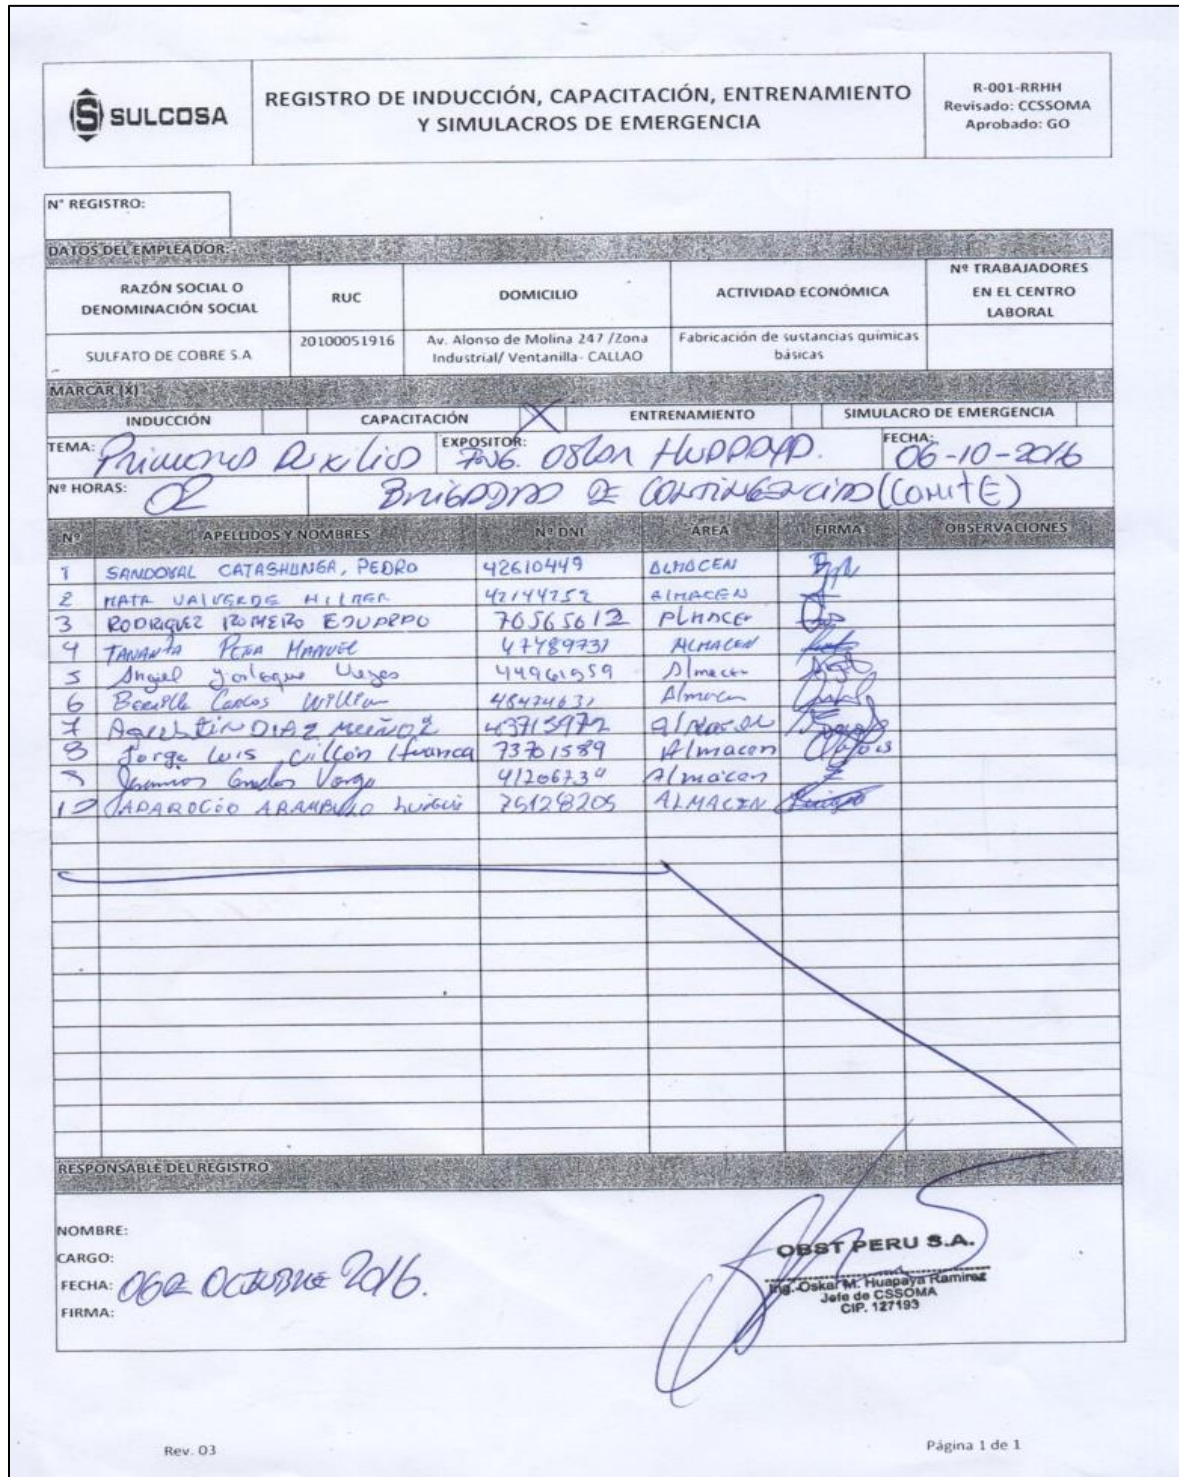 SULCOSA
REGISTRO DE INDUCCIÓN, CAPACITACIÓN, ENTRENAMIENTO
Y SIMULACROS DE EMERGENCIA
R-001-RRHH
Revisado: CCSSOMA
Aprobado: GO
N° REGISTRO:
DATOS DEL EMPLEADOR:
RAZÓN SOCIAL O DENOMINACIÓN SOCIAL RUC DOMICILIO ACTIVIDAD ECONÓMICA Nº TRABAJADORES EN EL CENTRO LABORAL
SULFATO DE COBRE S.A 20100051916 Av. Alonso de Molina 247 /Zona Industrial/ Ventanilla- CALLAO Fabricación de sustancias químicas básicas
MARCAR (X)
INDUCCIÓN CAPACITACIÓN X ENTRENAMIENTO SIMULACRO DE EMERGENCIA
TEMA: Primeros Auxilios EXPOSITOR: Ing. Oskar Huapaya. FECHA: 06-10-2016
Nº HORAS: 02 Brigadas de Contingencias (Comité)
Nº APELLIDOS Y NOMBRES Nº DNI AREA FIRMA OBSERVACIONES
1 SANDOVAL CATASHUNGA, PEDRO 42610449 ALMACEN
2 MATA VALVERDE HILMER 42144252 ALMACEN
3 RODRIGUEZ ROMERO EDUARDO 76565612 ALMACEN
4 TANANTA PEÑA MANUEL 47489731 ALMACEN
5 Angiel 44961959 Almacen
6 Carlos William Almacen
7 Agustin DIAZ MUÑOZ 43715972 almacen
8 Jorge Luis 73701589 Almacen
9 Vargas Almacen
10 APAROCIO ARAMBULO 75128205 ALMACEN
RESPONSABLE DEL REGISTRO
NOMBRE:
CARGO:
FECHA: 06 de Octubre 2016.
FIRMA:
OBST PERU S.A.
Ing. Oskar M. Huapaya Ramirez
Jefe de CSSOMA
CIP. 127193
Rev. 03
Página 1 de 1